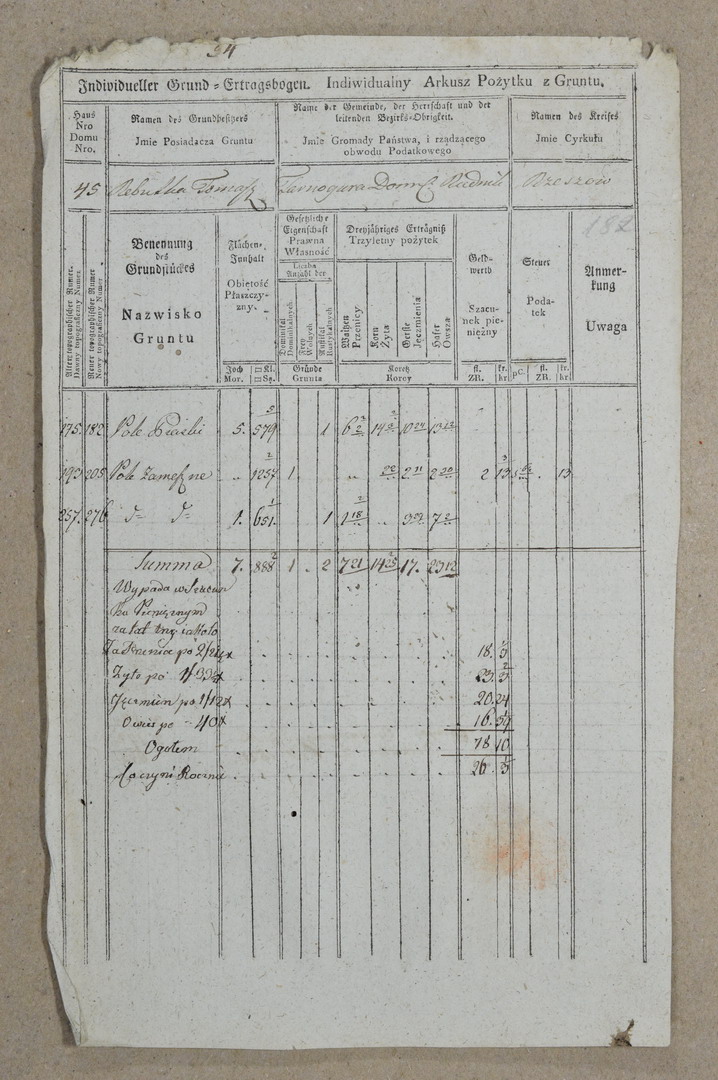 34
Individueller Grund-Ertragsbogen. Indiwidualny Arkusz Pożytku z Gruntu.
Haus Nro Domu Nro.
Namen des Grundbesitzers
Jmie Posiadacza Gruntu
Name der Gemeinde, der Herrschaft und der leitenden Bezirks-Obrigkeit.
Jmie Gromady Państwa, i rządzącego obwodu Podatkowego
Namen des Kreises
Jmie Cyrkułu
45 Rebutka Tomasz Tarnogura Domin Rudnik Rzeszow
182
Alter topographischer Numer.
Dawny topograficzny Numer
Neuer topographischer Numer
Nowy topograficzny Numer
Benennung des Grundstückes
Nazwisko Gruntu
Flächen-Innhalt
Obiętość Płaszczyzny.
Gesetzliche Eigenschaft
Prawna Własność
Liczba
Anzahl der
Dominikal
Dominikalnych
Frey
Wolnych
Rustikal
Rustykalnych
Dreyjähriges Erträgniß
Trzyletny pożytek
Waitzen
Pszenicy
Korn
Żyta
Gerste
Jęczmienia
Hafer
Owsa
Geldwerth
Szacunek pieniężny
Steuer
Podatek
Anmerkung
Uwaga
Joch Mor. □ Kl. □ Są. Gründe Grunta Koretz Korcy fl. ZR. kr. kr. pC. fl. ZR. kr. kr.
175. 182 Pole Piaski 5. 579 1 13
193 205 Pole Zamesne 1257 1 2 13 13
257. 276 1. 651 1 1 18
Summa 7. 888 1 2 7 21 14 25 17. 23 12
Wypada w Szacun
ku Pienięznym
za lat trzy iakoto
Za Przenica po 2/
Zyto po 1/33
Jęczmien po 1/12 20. 24
Owies po 40
Ogołem 78 10
Co czyni Rocznie 26 3